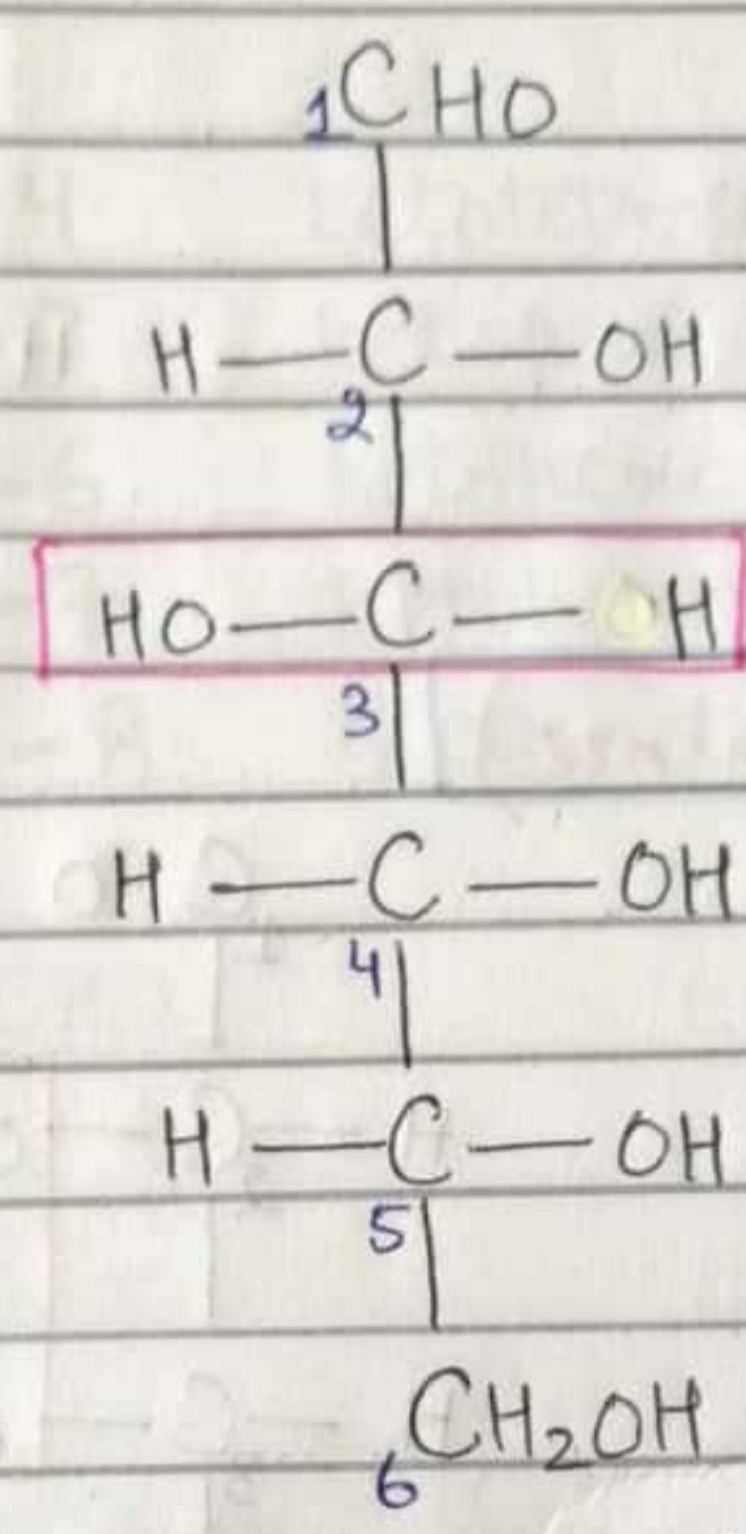 1CHO
H—C—OH
2
HO—C—H
3
H—C—OH
4
H—C—OH
5
CH₂OH
6